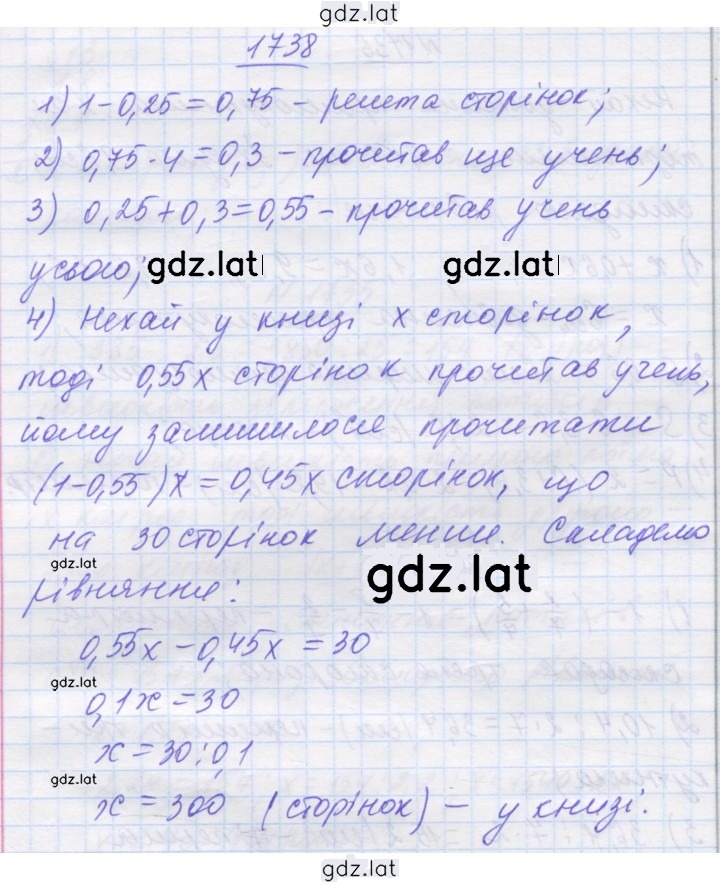 gdz.lat
1738
1) 1-0,25=0,75 - решта сторінок;
2) 0,75·4=0,3 - прочитав ще учень;
3) 0,25+0,3=0,55 - прочитав учень
усього; gdz.lat gdz.lat
4) Нехай у книзі x сторінок,
тоді 0,55x сторінок прочитав учень,
йому залишилося прочитати
(1-0,55)x=0,45x сторінок, що
на 30 сторінок менше. Складемо
gdz.lat gdz.lat
рівняння:
0,55x-0,45x=30
gdz.lat
0,1x=30
x=30:0,1
gdz.lat
x=300 (сторінок) - у книзі.
gdz.lat